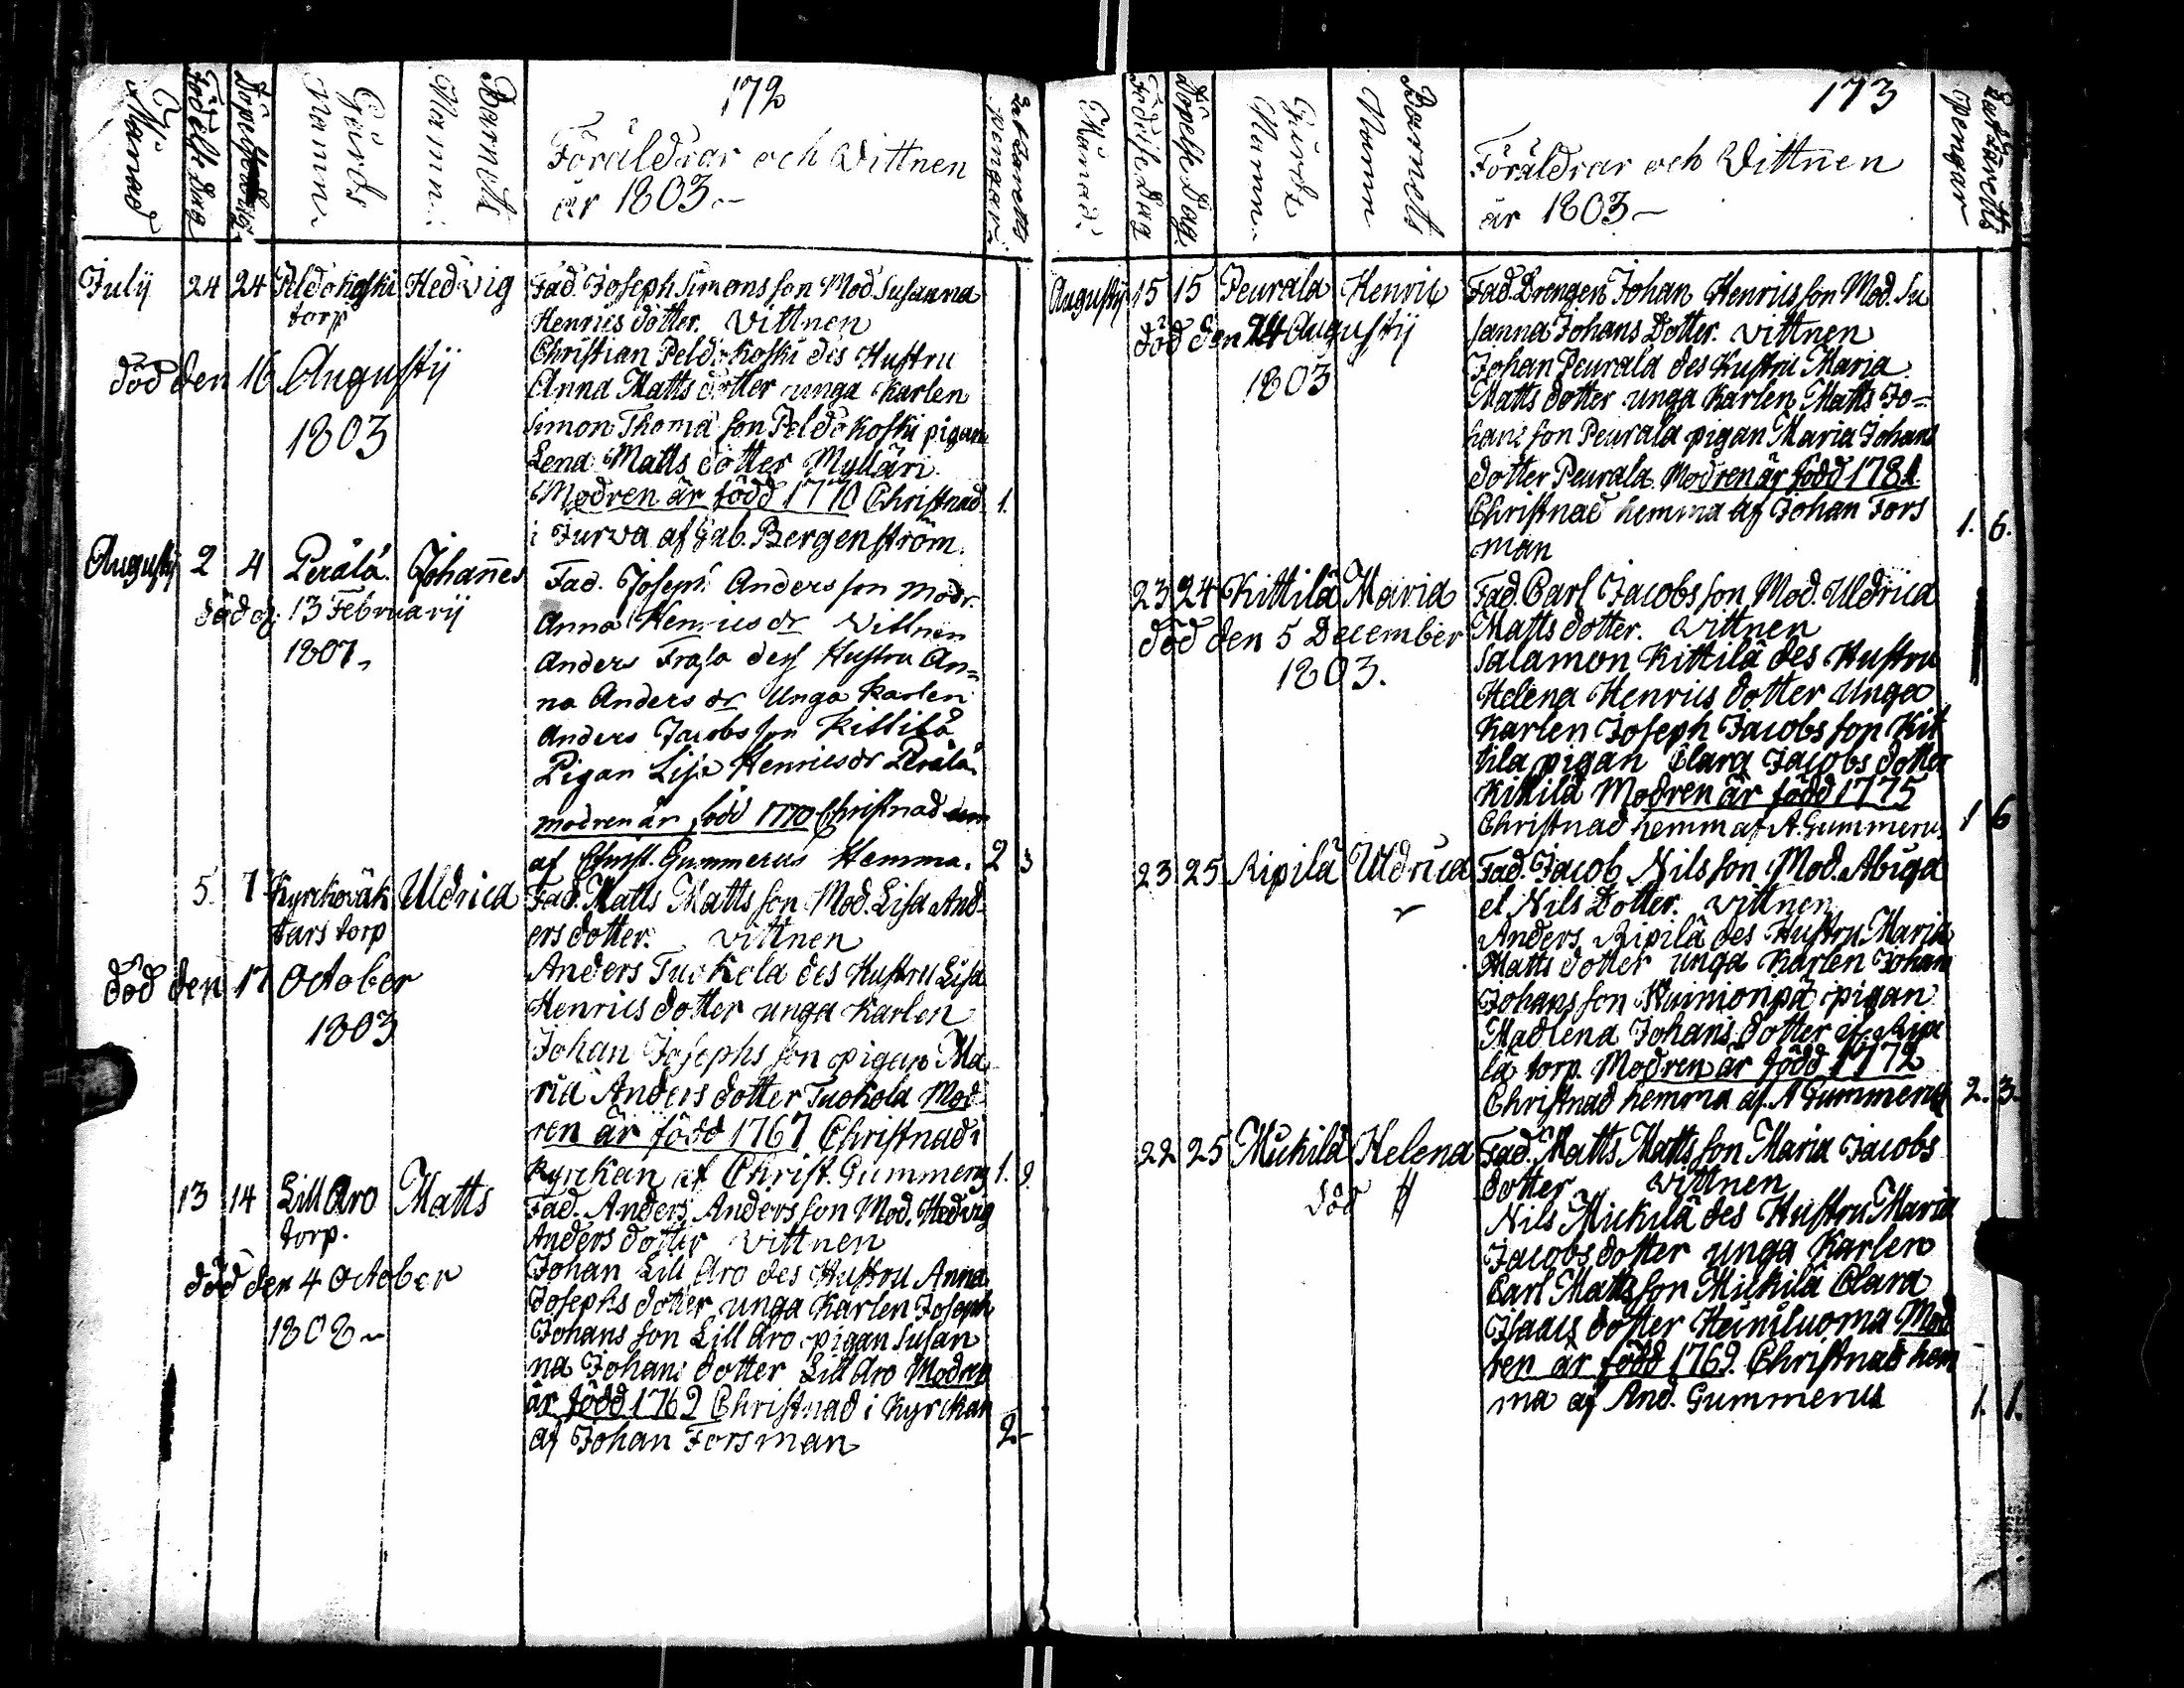 172
Månad
Födelse Dag
Döpelse Dag
Gårds Namn
Barnets Namn
Föräldrar och Vittnen
år 1803.
Lazaretts Pengar
July 24 24 Peldokoski Hedvig Fad. Joseph Simons son Mod Susanna
torp Henrics dotter. Vittnen
Christian Peldokoski des Hustru
död den 16 Augustij Anna Matts dotter unga Karlen
1803 Simon Thomas son Peldokoski pigan
Lena Matts dotter Mylläri
Modren är född 1770 Christnad 1.
i Jurva af Gab. Bergenström.
Augustij 2 4 Perälä. Johannes Fad. Joseph Anders son Modr.
död d. 13 Februarij Anna Henricsdr Vittnen
1807. Anders Frasa dess Hustru An=
na Andersdr Unga Karlen
Anders Jacobs son Kittilä
Pigan Lisa Henricsdr Perälä
modren är född 1770 Christnad
af Christ. Gummerus Hemma. 2 3
5. 7 Kyrckoväk Uldrica Fad. Matts Matts son Mod. Lisa And
tars torp ers dotter. Vittnen
död den 17 October Anders Tuokola des Hustru Lisa
Henrics dotter unga Karlen
1803 Johan Josephs son pigan Ma
ria Anders dotter Tuokola Mod
ren är född 1767 Christnad i
Kyrckan af Christ. Gummerus 1. 9.
13 14 Lill Aro Matts Fad. Anders Anders son Mod. Hedvig
torp. Anders dotter Vittnen
död den 4 October Johan Lill Aro des Hustru Anna
Josephs dotter unga Karlen Joseph
1808 Johans son Lill Aro pigan Susan
na Johans dotter Lill Aro Modren
är född 1762 Christnad i Kyrckan
af Johan Forsman 2 -
173
Månad
Födelse Dag
Döpelse Dag
Gårds Namn
Barnets Namn
Föräldrar och Vittnen
år 1803
Lazaretts Pengar
Augustij 15 15 Peurala Henric Fad. Drengen Johan Henrics son Mod. Su
död den 24 Augustij sanna Johans Dotter. Vittnen
1803 Johan Peurala des Hustru Maria
Matts dotter unga Karlen Matts Jo=
hans son Peurala pigan Maria Johans
dotter Peurala. Modren är född 1781.
Christnad hemma af Johan Fors 1. 6.
man
23 24 Kittilä Maria Fad. Carl Jacobs son Mod. Uldrica
död den 5 December Matts dotter. Vittnen
1803. Salamon Kittilä des Hustru
Helena Henrics dotter Unga
Karlen Joseph Jacobs son Kit
tilä pigan Clara Jacobs dotter
Kittilä Modren är född 1775
Christnad hemm af A. Gummerus 1 6
23 25 Ripilä Uldrica Fad. Jacob Nils son Mod. Abiga
el Nils Dotter. Vittnen
Anders Ripilä des Hustru Maria
Matts dotter unga Karlen Johan
Johans son pigan
Madlena Johans dotter Ripi
lä torp. Modren är född 1772
Christnad hemma af. A Gummerus 2. 3.
22 25 Mickilä Helena Fad. Matts Matts son Maria Jacobs
död dotter Vittnen
Nils Mickilä des Hustru Maria
Jacobs dotter unga Karlen
Carl Matts son Mickilä Clara
Isaacs dotter Heiniluoma Mod
ren är född 1769. Christnad hem
ma af And. Gummerus 1. 1.